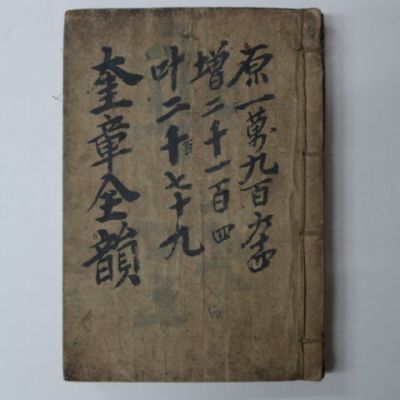 原一萬九百六十四
增二十一百四
叶二十百七十九
奎章全韻